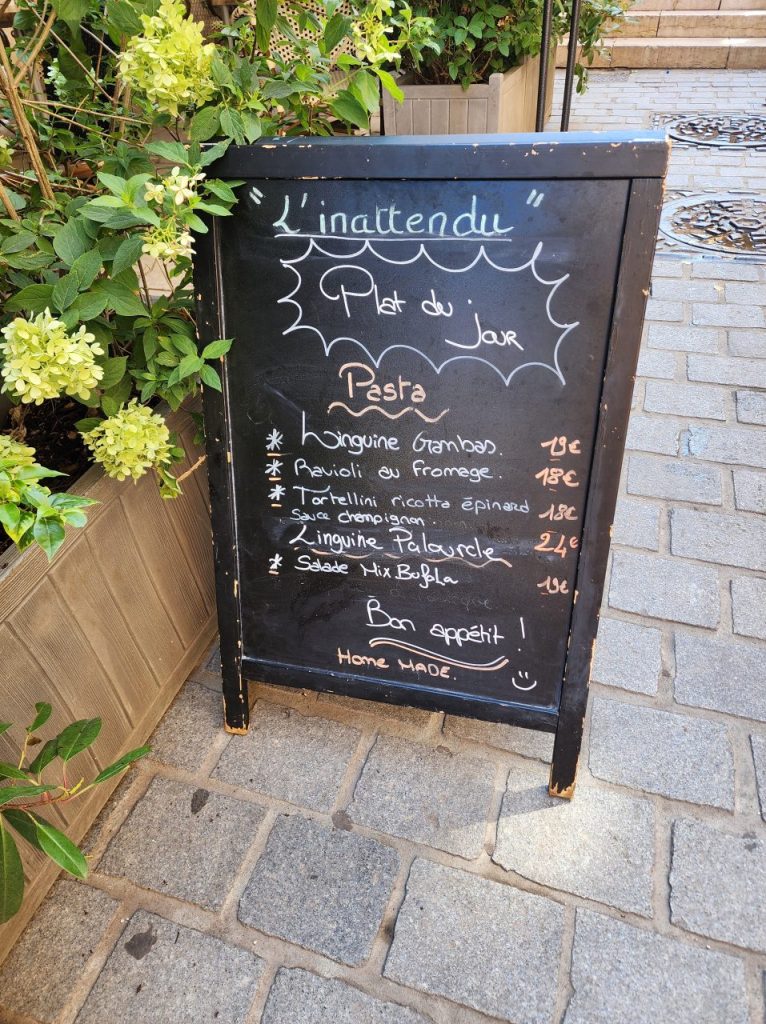 "L'inattendu"
Plat du
jour
Pasta
* Linguine Gambas. 19€
* Ravioli au fromage. 18€
* Tortellini ricotta épinard 18€
Sauce champignon.
Linguine Palourde 24€
* Salade Mix Bufala 19€
Bon appétit !
Home MADE.